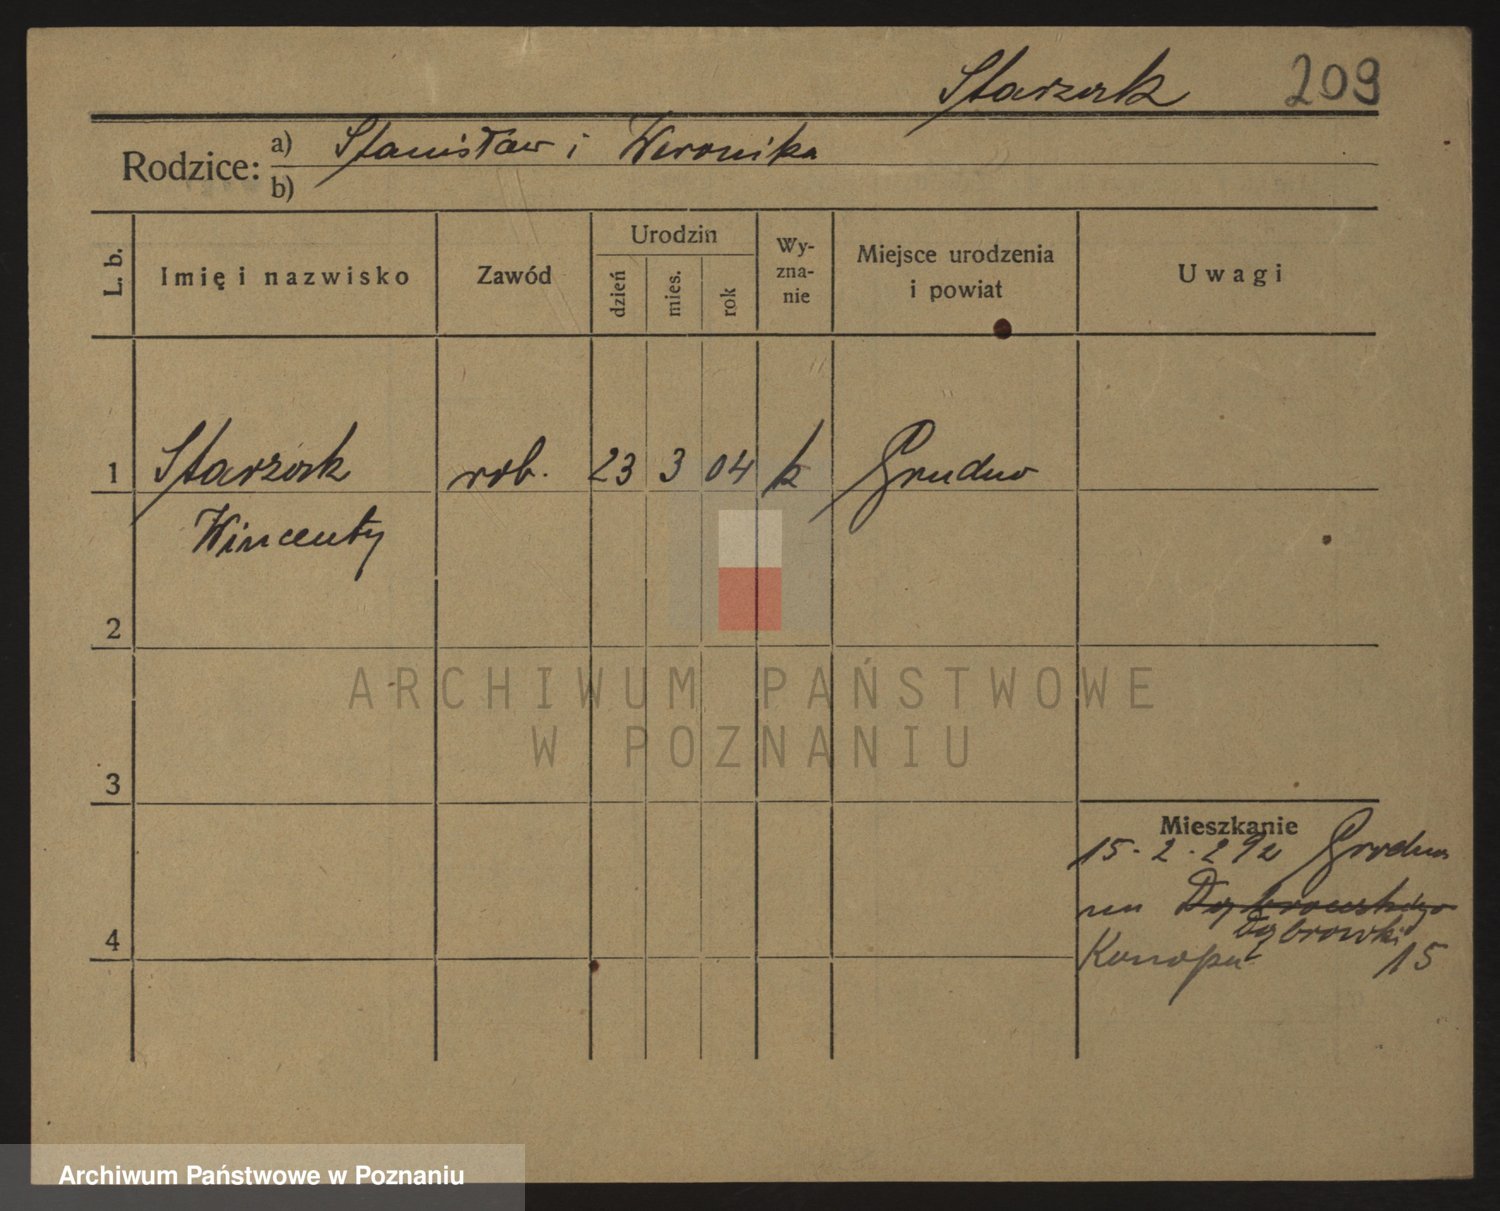 Starzak 209
Rodzice: a) Stanisław i Weronika
b)
L. b. Imię i nazwisko Zawód Urodzin dzień mies. rok Wy-zna-nie Miejsce urodzenia i powiat Uwagi
1 Starzak rob. 23 3 04 k Grudna
Wincenty
2
ARCHIWUM PAŃSTWOWE
W POZNANIU
3
Mieszkanie
15. 2. 29 Grodna
Dąbrowskiego
Dąbrowki
4 15
Archiwum Państwowe w Poznaniu